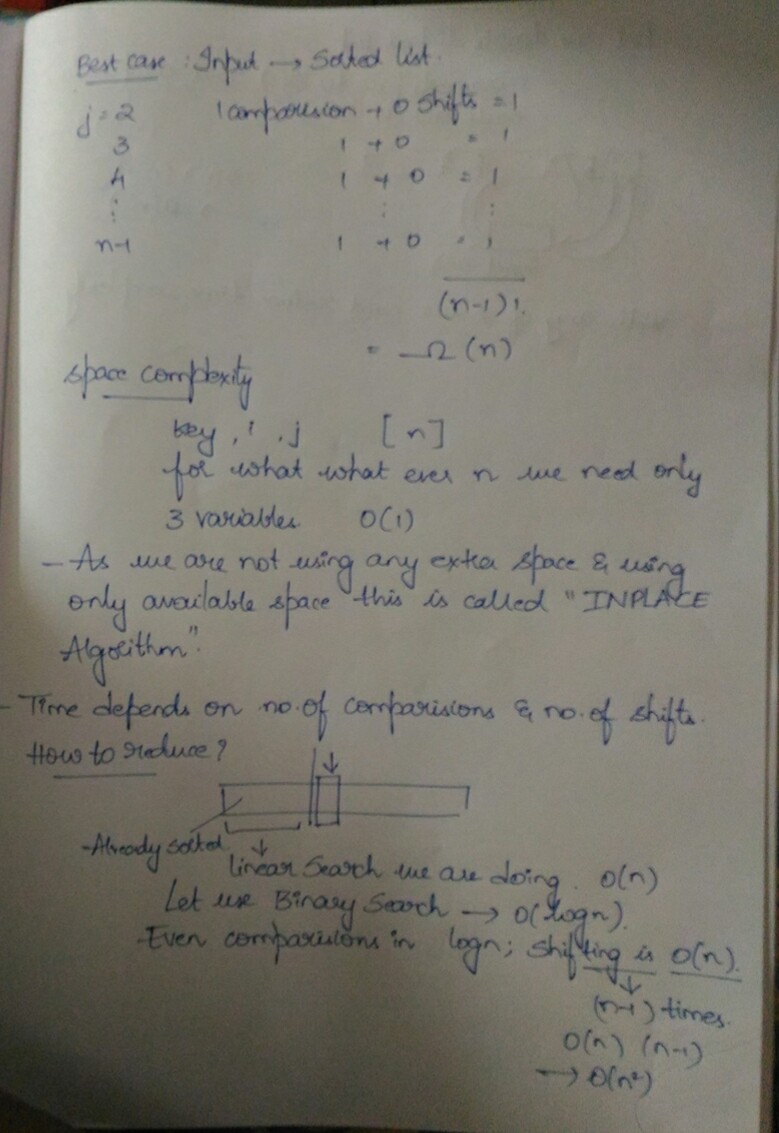 Best case : Input → Sorted list.
j = 2 1 comparision + 0 shifts = 1
3 1 + 0 = 1
4 1 + 0 = 1
⋮ ⋮ ⋮
n-1 1 + 0 = 1
(n-1)1.
= Ω (n)
space complexity
key , i , j [n]
for what what ever n we need only
3 variables. O(1)
- As we are not using any extra space & using
only available space this is called "INPLACE
Algorithm".
- Time depends on no. of comparisions & no. of shifts.
How to reduce?
↓
-Already sorted. ↓
linear Search we are doing. O(n)
Let use Binary Search → O(logn).
-Even comparisions in logn; shifting is O(n).
↓
(n-1) times.
O(n) (n-1)
→ O(n²)